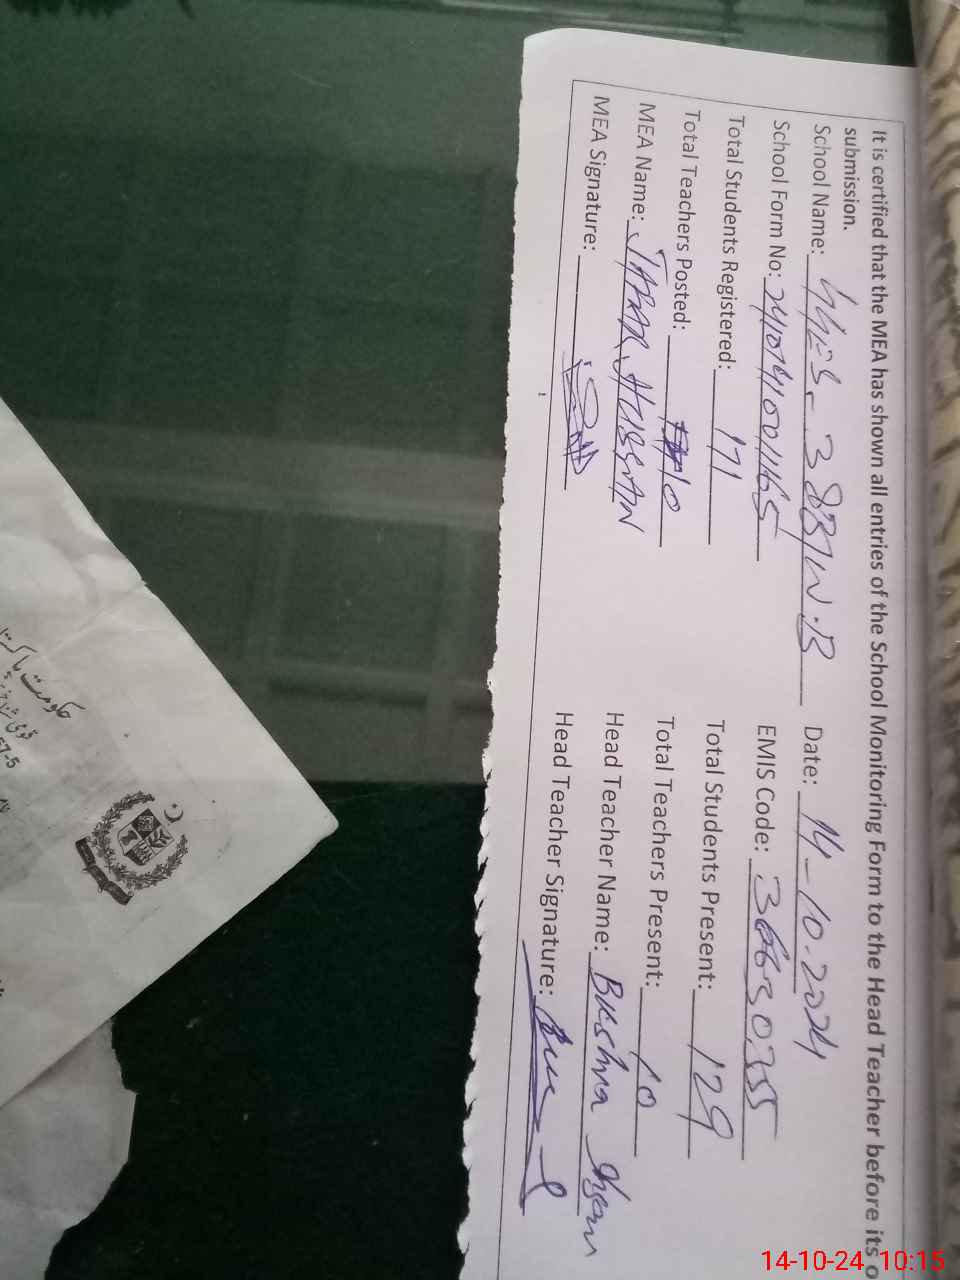 It is certified that the MEA has shown all entries of the School Monitoring Form to the Head Teacher before its
submission.
School Name: 388/W.B Date: 14-10.2024
School Form No: EMIS Code: 36630355
Total Students Registered: 171 Total Students Present: 129
Total Teachers Posted: 10 Total Teachers Present: 10
MEA Name: JAFAR HUSSAIN Head Teacher Name: Bushra
MEA Signature: Head Teacher Signature:
حکومت پاکستان
14-10-24 10:15